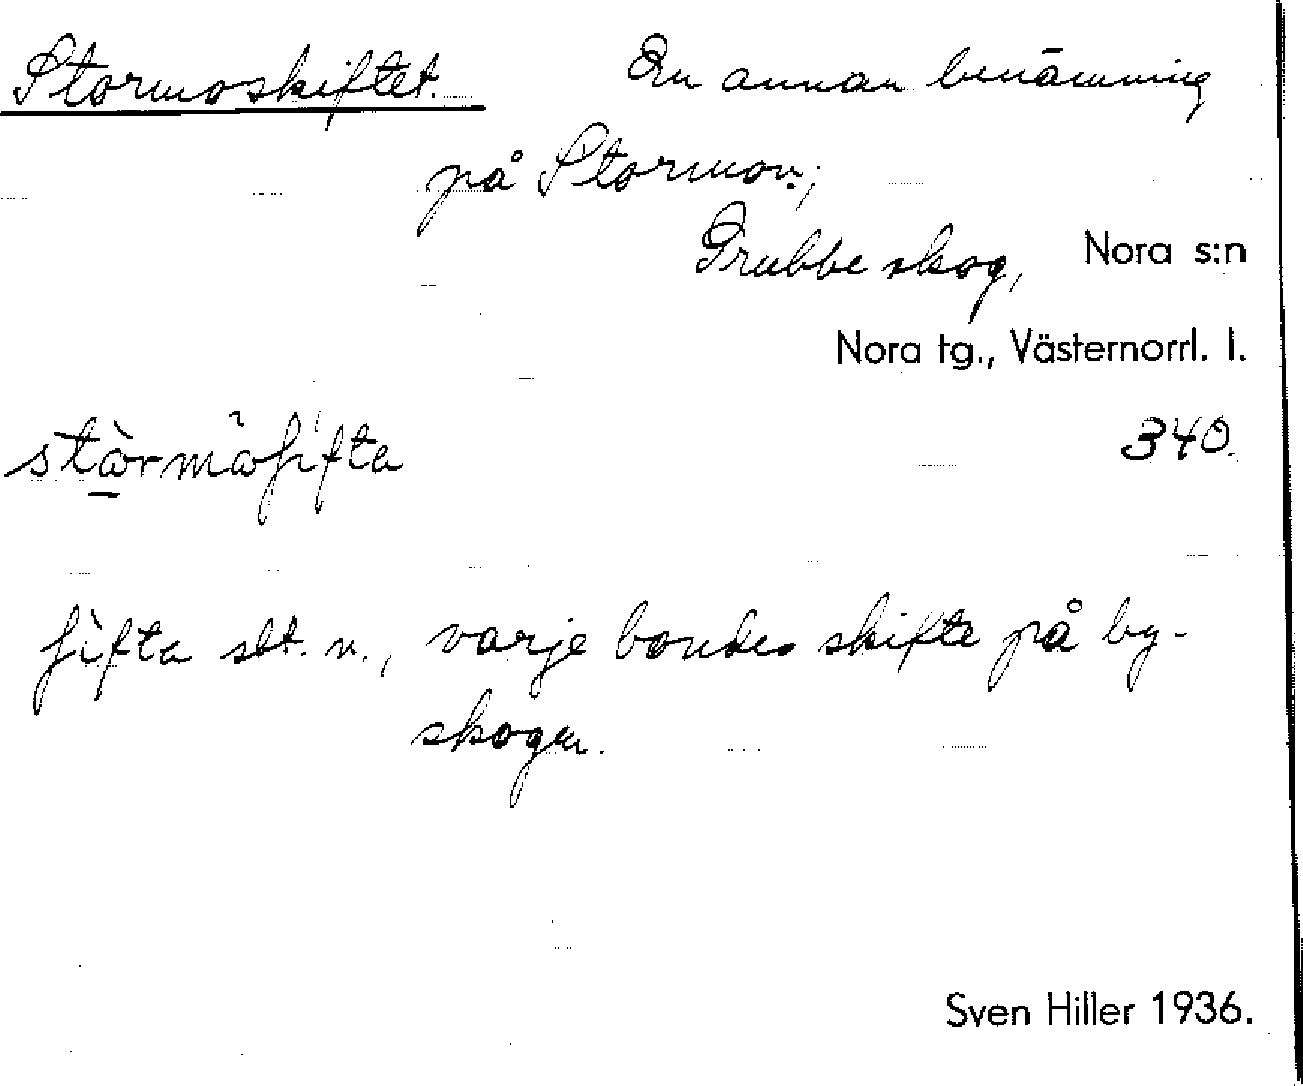 Stormoskiftet. En annan benämning
på Stormon;
Grubbe skog, Nora s:n
Nora tg., Västernorrl. l.
340.
varje bondes skifte på by-
skogen.
Sven Hiller 1936.